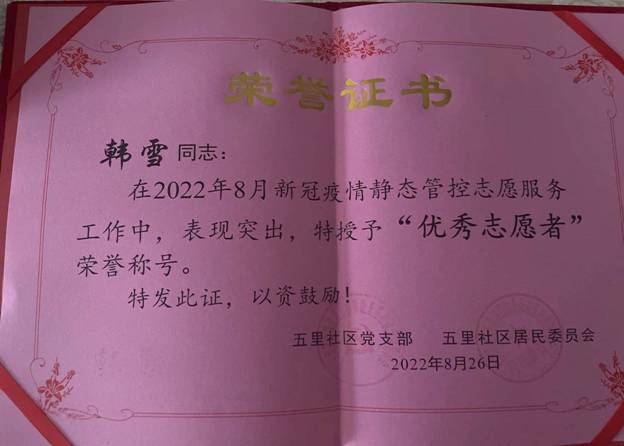 荣誉证书
韩雪 同志：
在2022年8月新冠疫情静态管控志愿服务
工作中，表现突出，特授予“优秀志愿者”
荣誉称号。
特发此证，以资鼓励！
五里社区党支部 五里社区居民委员会
2022年8月26日